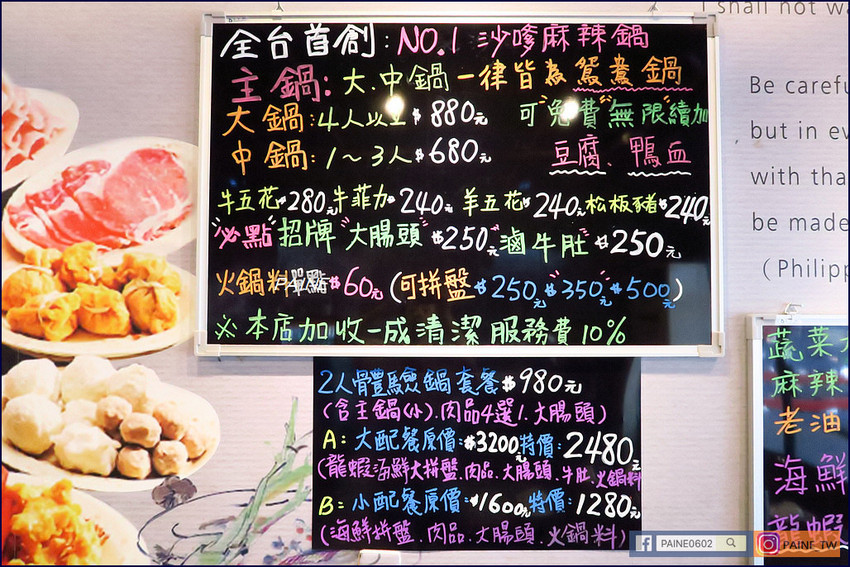 I shall not wa
全台首創:NO.1 沙嗲麻辣鍋
主鍋:大.中鍋一律皆為鴛鴦鍋
大鍋:4人以上$880元 可"免費"無限"續加
中鍋:1～3人$680元 豆腐、鴨血
牛五花$280元牛菲力$240元 羊五花$240元松板豬$240元
"必點"招牌"大腸頭"$250元滷牛肚$250元
火鍋料單點$60元(可拼盤$250元$350元$500元)
※本店加收一成清潔服務費10%
2人體驗鍋套餐$980元
(含主鍋(小).肉品4選1.大腸頭)
A:大配餐原價:$3200元特價:2480元
(龍蝦海鮮大拼盤.肉品.大腸頭.牛肚.火鍋料
B:小配餐原價:$1600元特價:1280元
(海鮮拼盤.肉品.大腸頭.火鍋料)
Be carefu
but in ev
with tha
be made
(Philipp
蔬菜
麻辣
老油
海鮮
龍蝦
PAINE0602
PAINE_TW